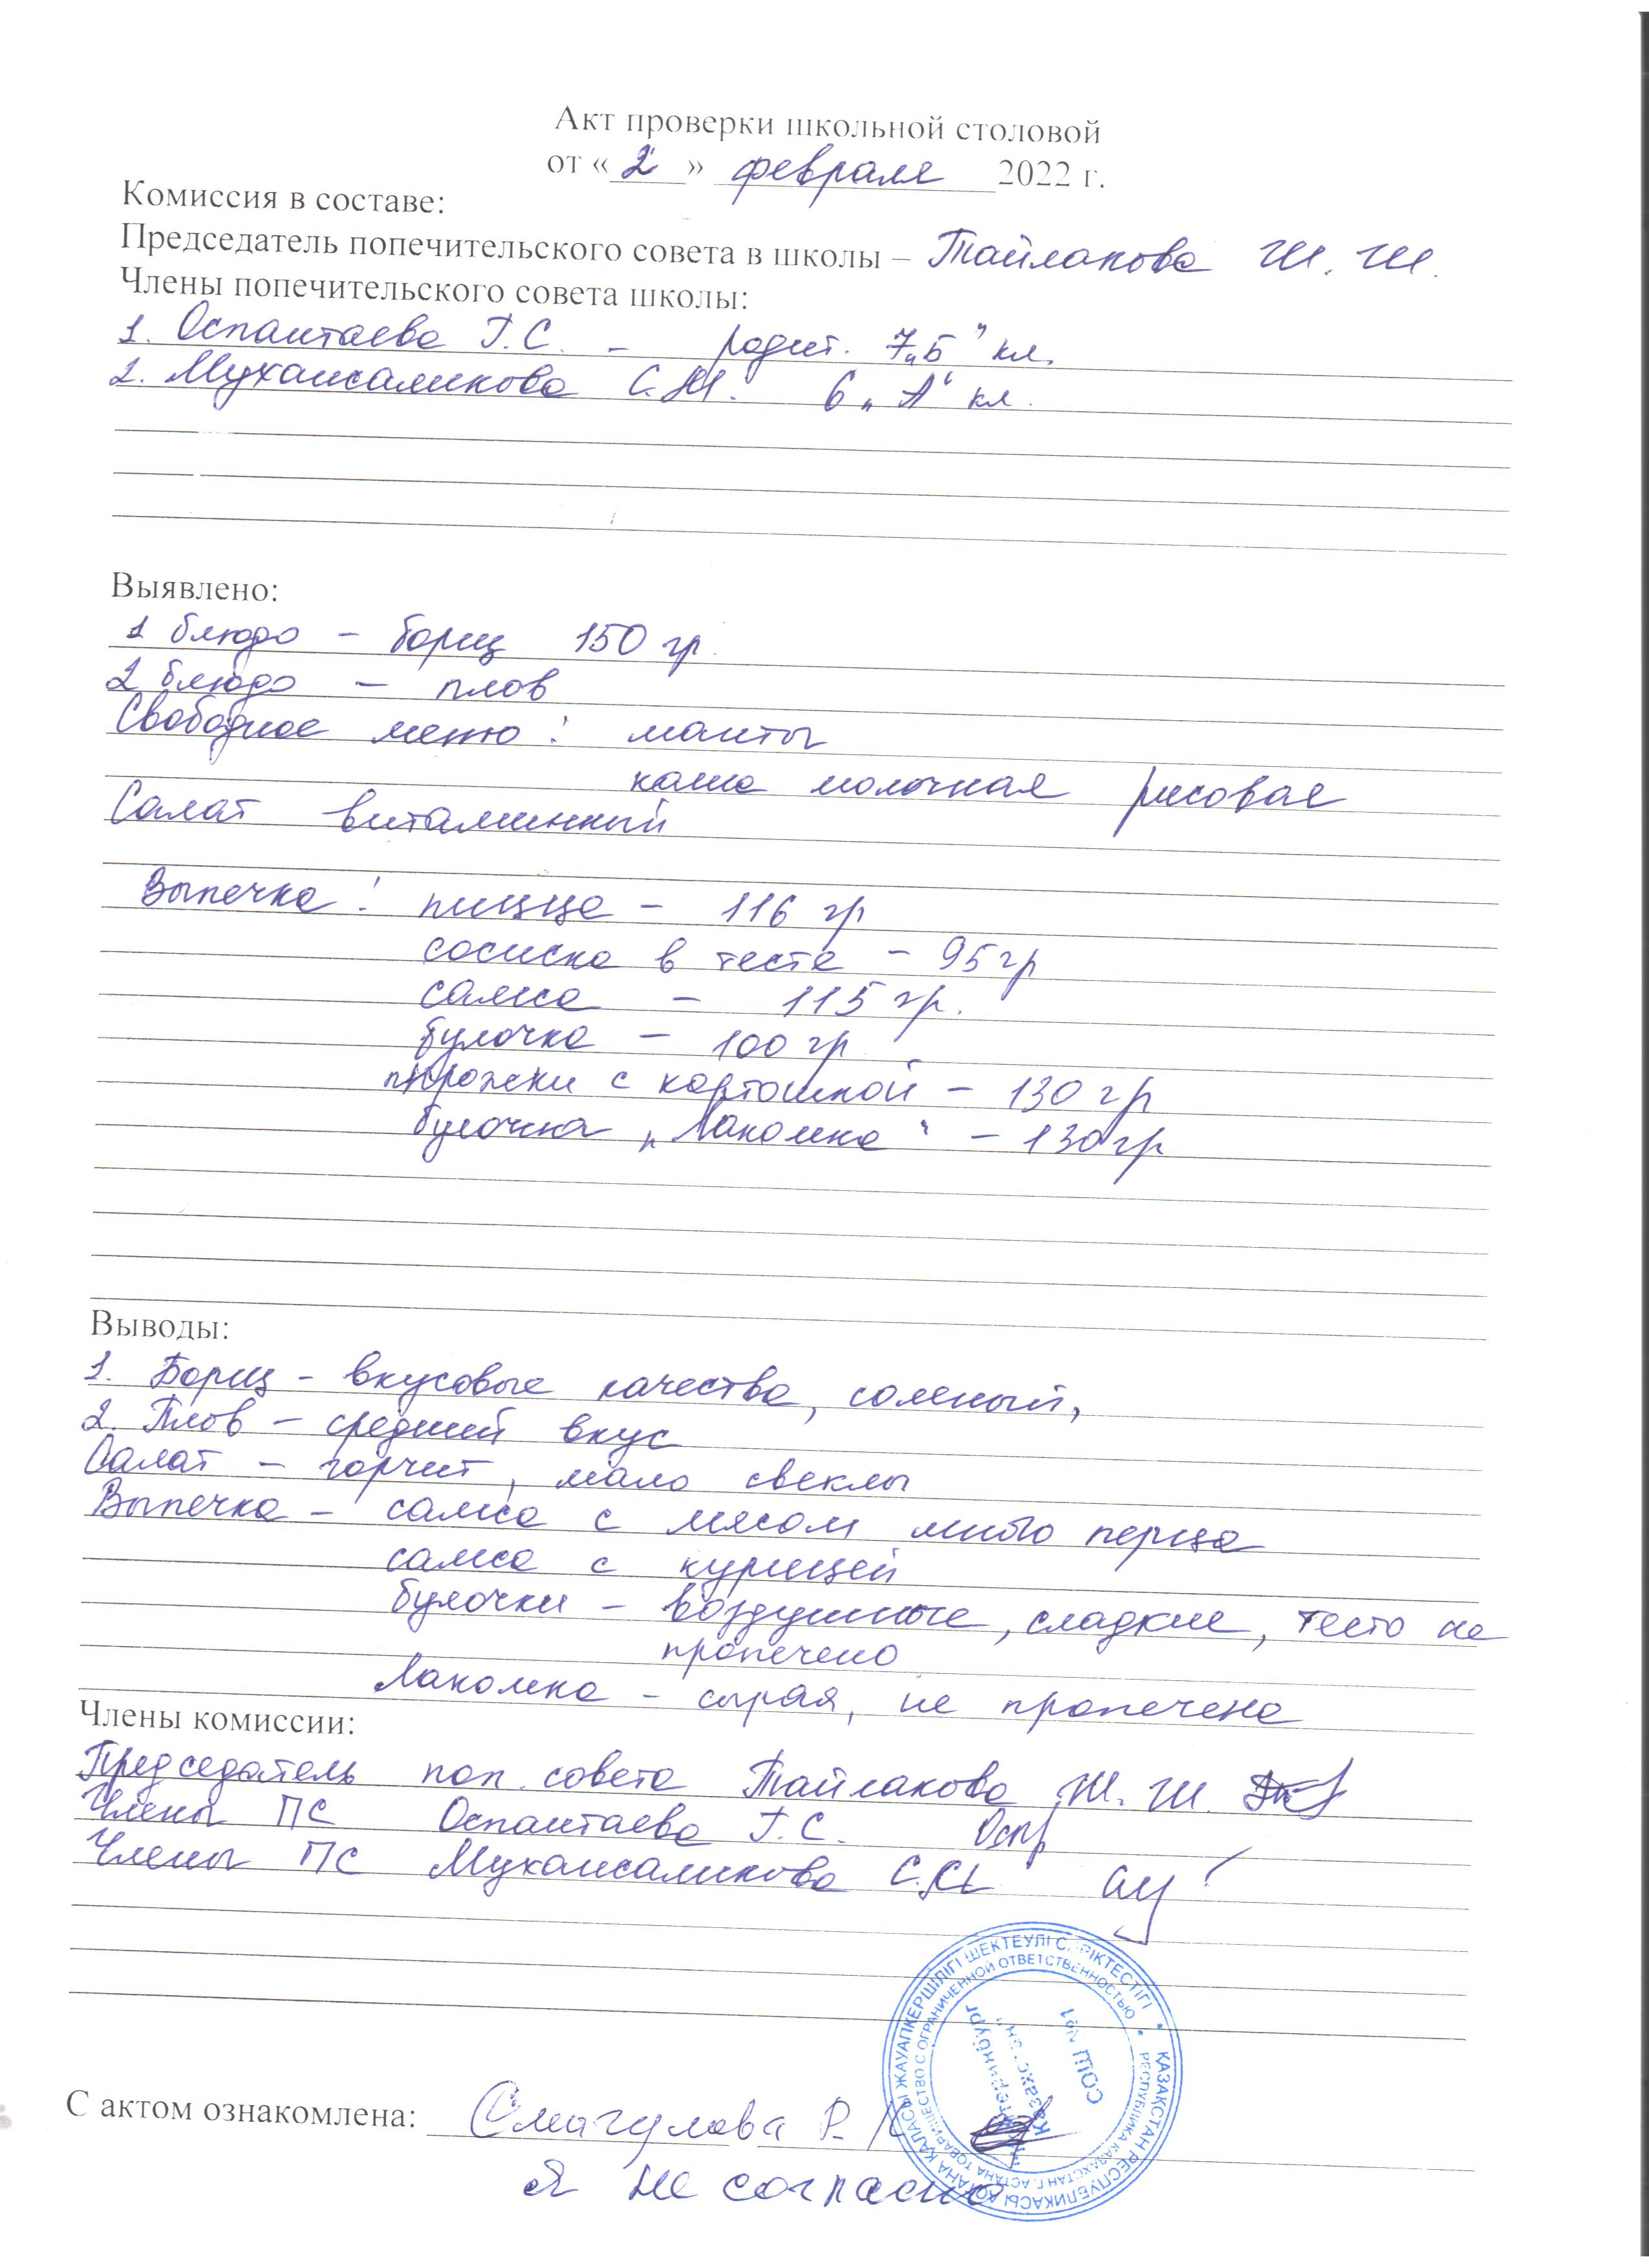 Акт проверки школьной столовой
от « 2 » февраля 2022 г.
Комиссия в составе:
Председатель попечительского совета в школы – Тайлакова Ж. Ш.
Члены попечительского совета школы:
1. Оспантаева Г.С. – родит. 7 „Б" кл.
2. Мухансаликова С. 6 „А" кл.
Выявлено:
1 блюдо – борщ 150 гр.
2 блюдо – плов
Свободное меню: манты
каша молочная рисовая
Салат витаминный
Выпечка: пицца – 116 гр
сосиска в тесте – 95 гр
самса – 115 гр.
булочка – 100 гр
пирожки с картошкой – 130 гр
булочка „Лакомка" – 130 гр
Выводы:
1. Борщ – вкусовые качества, соленый,
2. Плов – средний вкус
Салат – горчит, мало свеклы
Выпечка – самса с мясом много перца
самса с курицей
булочки – воздушные, сладкие, тесто не
пропечено
Лакомка – сырая, не пропечена
Члены комиссии:
Председатель поп. совета Тайлакова Ж. Ш.
Члены ПС Оспантаева Г.С.
Члены ПС Мухансаликова С.
ҚАЗАҚСТАН РЕСПУБЛИКАСЫ АСТАНА ҚАЛАСЫ ЖАУАПКЕРШІЛІГІ ШЕКТЕУЛІ СЕРІКТЕСТІГІ
РЕСПУБЛИКА КАЗАХСТАН Г. АСТАНА ТОВАРИЩЕСТВО С ОГРАНИЧЕННОЙ ОТВЕТСТВЕННОСТЬЮ
СОШ №1
С актом ознакомлена: Смагулова Р. К
Я не согласна